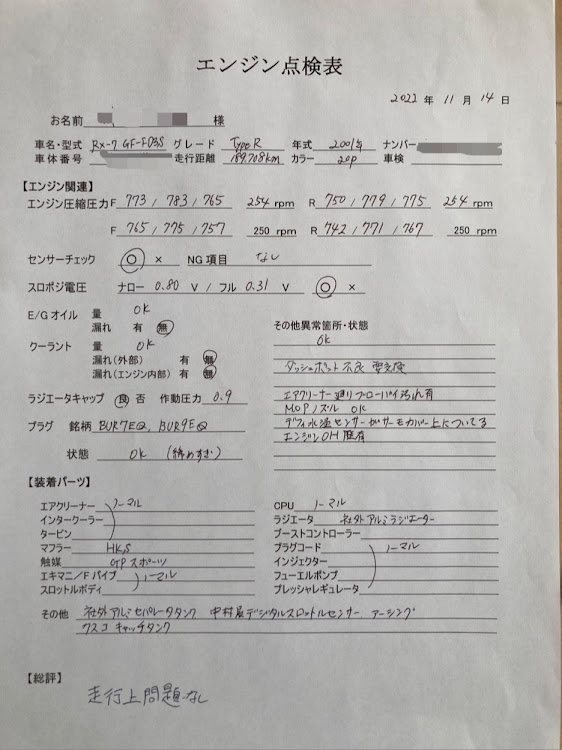 エンジン点検表
2022 年 11 月 14 日
お名前 様
車名・型式 RX-7 GF-FD3S グレード Type R 年式 2001年 ナンバー
車体番号 走行距離 189.708km カラー 20P 車検
【エンジン関連】
エンジン圧縮圧力 F 773 / 783 / 765 254 rpm R 750 / 779 / 775 254 rpm
F 765 / 775 / 757 250 rpm R 742 / 771 / 767 250 rpm
センサーチェック ○ × NG項目 なし
スロポジ電圧 ナロー 0.80 V / フル 0.31 V ○ ×
E/Gオイル 量 OK
漏れ 有 無
クーラント 量 OK
漏れ(外部) 有 無
漏れ(エンジン内部) 有 無
ラジエータキャップ 良 否 作動圧力 0.9
プラグ 銘柄 BUR7EQ, BUR9EQ
状態 OK (締めすぎ)
その他異常箇所・状態
OK
ダッシュポット不良 要交換
エアクリーナー廻りブローバイ汚れ有
MOPノズル OK
デフィ水温センサーがサーモカバー上についてる
エンジンOH歴有
【装着パーツ】
エアクリーナー ノーマル
インタークーラー
タービン
マフラー HKS
触媒 スポーツ
エキマニ/Fパイプ ノーマル
スロットルボディ
CPU ノーマル
ラジエータ 社外アルミラジエーター
ブーストコントローラー
プラグコード ノーマル
インジェクター
フューエルポンプ
プレッシャレギュレータ
その他 社外アルミセパレータタンク 中村屋デジタルスロットルセンサー アーシング
クスコ キャッチタンク
【総評】
走行上問題なし